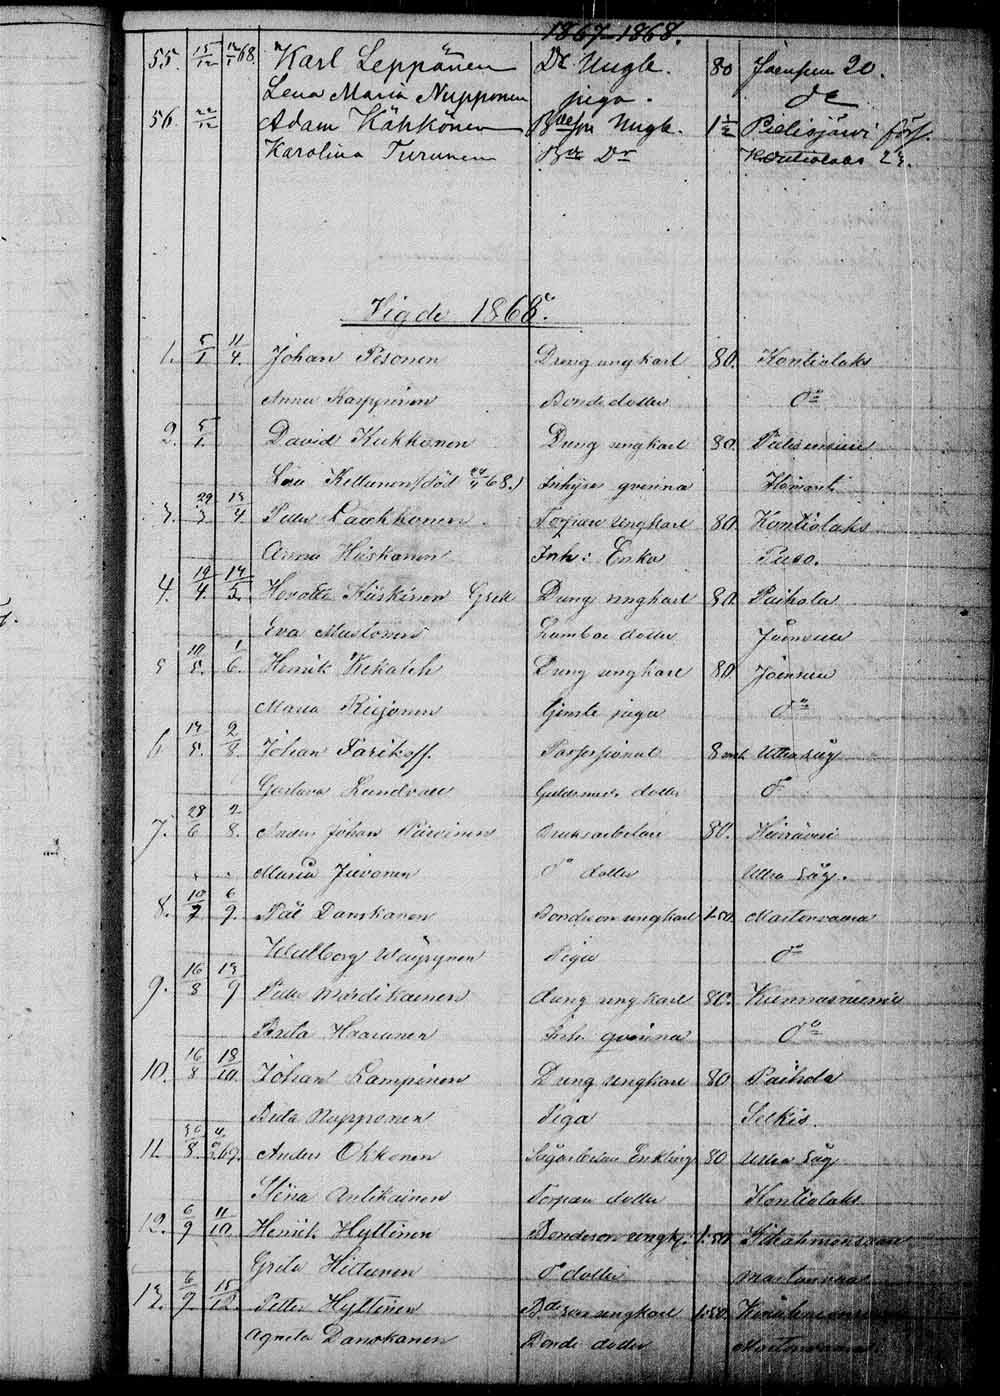 1867-1868.
55. 15/12 12/1 68. Karl Leppänen Dr Ungk. 80 Joensuu 20.
Lena Maria Nupponen piga. do
56 22/12 Adam Kähkönen Bdeson Ungk. 1 1/2 Pielisjärvi förs.
Karolina Turunen Bde Dr Kontiolaks 23.
Vigde 1868.
1. 5/1 11/4. Johan Pesonen Dreng ungkarl 80. Kontiolaks
Anna Karppinen Bonde dotter do
2. 5/1 David Kukkonen Dreng ungkarl 80.
Kettunen (död 68.) Inhyse qvinna Ilomants
3. 29/3 13/4 Petter Laakkonen Torpare ungkarl 80 Kontiolaks
Anna Hiiskanen Inh: Enka Puso.
4. 19/4 17/5. Kiiskinen Dreng ungkarl 80. Paihola
Eva Mustonen dotter Joensuu
5 10/5. 1/6. Henrik Dreng ungkarl 80 Joensuu
Maria piga do
6 17/5. 2/8. Johan 8 mk Utra såg
Gustava Lundvall Guldsmeds dotter do
7. 28/6 2/8. Anders Johan Bruksarbetare 80.
Maria Juvonen do dotter Utra såg.
8. 10/7 6/9. Pål Danskanen Bondeson ungkarl 1.50. Martonvaara
Walborg Väyrynen Piga do
9. 16/8 13/9 Petter Mardikainen dreng ungkarl 80. Kunnasniemi
Brita Inh. qvinna do
10. 16/8 18/10. Johan Lampinen Dreng ungkarl 80 Paihola
Brita Nupponen Piga Selkis.
11. 30/8. 69. Anders Okkonen Sågarbetare Enkling 80 Utra Såg
Stina Antikainen Torpare dotter Kontiolaks
12. 6/9 11/10. Henrik Hyttinen Bondeson ungk. 1.50.
Greta Hiltunen do dotter Martonvaara
13. 6/9 15/12 Petter Hyttinen Bdeson ungkarl 1.50.
Agneta Danskanen Bonde dotter Martonvaara